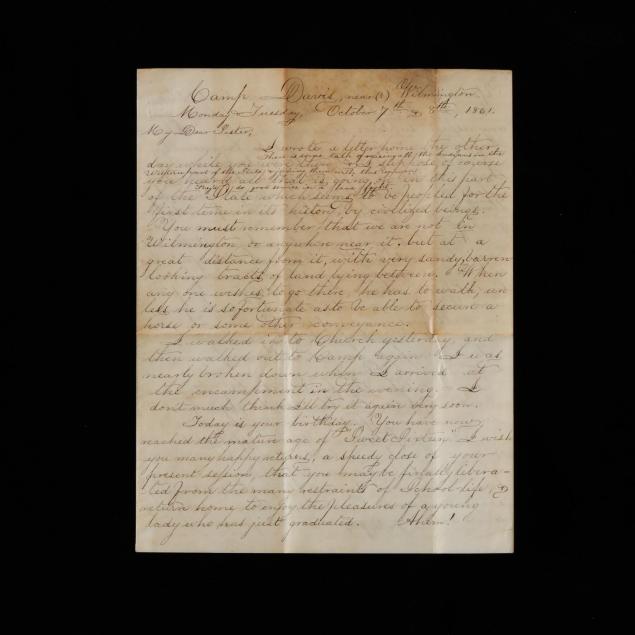 Camp Davis, near(?) Wilmington
Monday Tuesday, October 7th & 8th, 1861.
My Dear Sister,
I wrote a letter home the other
day while you were there & I suppose of course
There is some talk of
western part of the State,
you heard all that is going on in this part
of the State which seems to be peopled for the
first time in its history by civilized beings.
You must remember that we are not in
Wilmington or anywhere near it, but at a
great distance from it, with very sandy, barren
looking tracts of land lying between. When
any one wishes to go there he has to walk, un
less he is so fortunate as to be able to secure a
horse or some other conveyance.
I walked in to Church yesterday, and
then walked out to Camp again. I was
nearly broken down when I arrived at
the encampment in the evening. I
don't much think I'll try it again very soon.
Today is your birthday. You have now
reached the mature age of "Sweet Sixteen" I wish
you many happy returns, a speedy close of your
present session, that you may be finally libera-
ted from the many restraints of School-life, &
return home to enjoy the pleasures of a young
lady who has just graduated. Ahem!